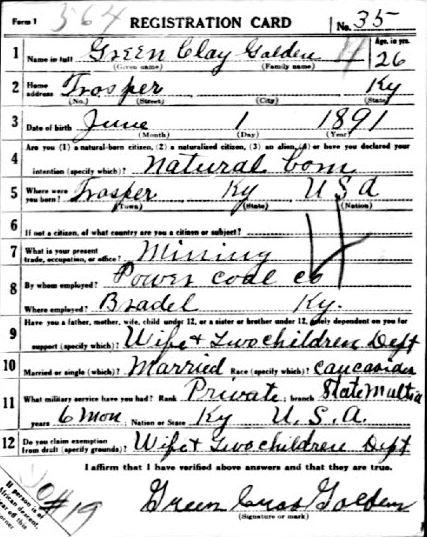 Form 1 564 REGISTRATION CARD No. 35
1 Name in full Green Clay Golden Age, in yrs. 26
(Given name) (Family name)
2 Home address Trosper Ky
(No.) (Street) (City) (State)
3 Date of birth June 1 1891
(Month) (Day) (Year)
4 Are you (1) a natural-born citizen, (2) a naturalized citizen, (3) an alien, (4) or have you declared your
intention (specify which)? Natural born
5 Where were you born? Trosper Ky U S A
(Town) (State) (Nation)
6 If not a citizen, of what country are you a citizen or subject?
7 What is your present trade, occupation, or office? Mining
8 By whom employed? Power coal co
Where employed? Bradel Ky.
9 Have you a father, mother, wife, child under 12, or a sister or brother under 12, solely dependent on you for
support (specify which)? Wife & Two children Dept
10 Married or single (which)? Married Race (specify which)? caucasian
11 What military service have you had? Rank Private; branch State
years 6 Mon Nation or State Ky U.S.A.
12 Do you claim exemption from draft (specify grounds)? Wife & Two children Dept
I affirm that I have verified above answers and that they are true.
Green Golden
(Signature or mark)
If person is of
African descent,
tear off this
corner
#19